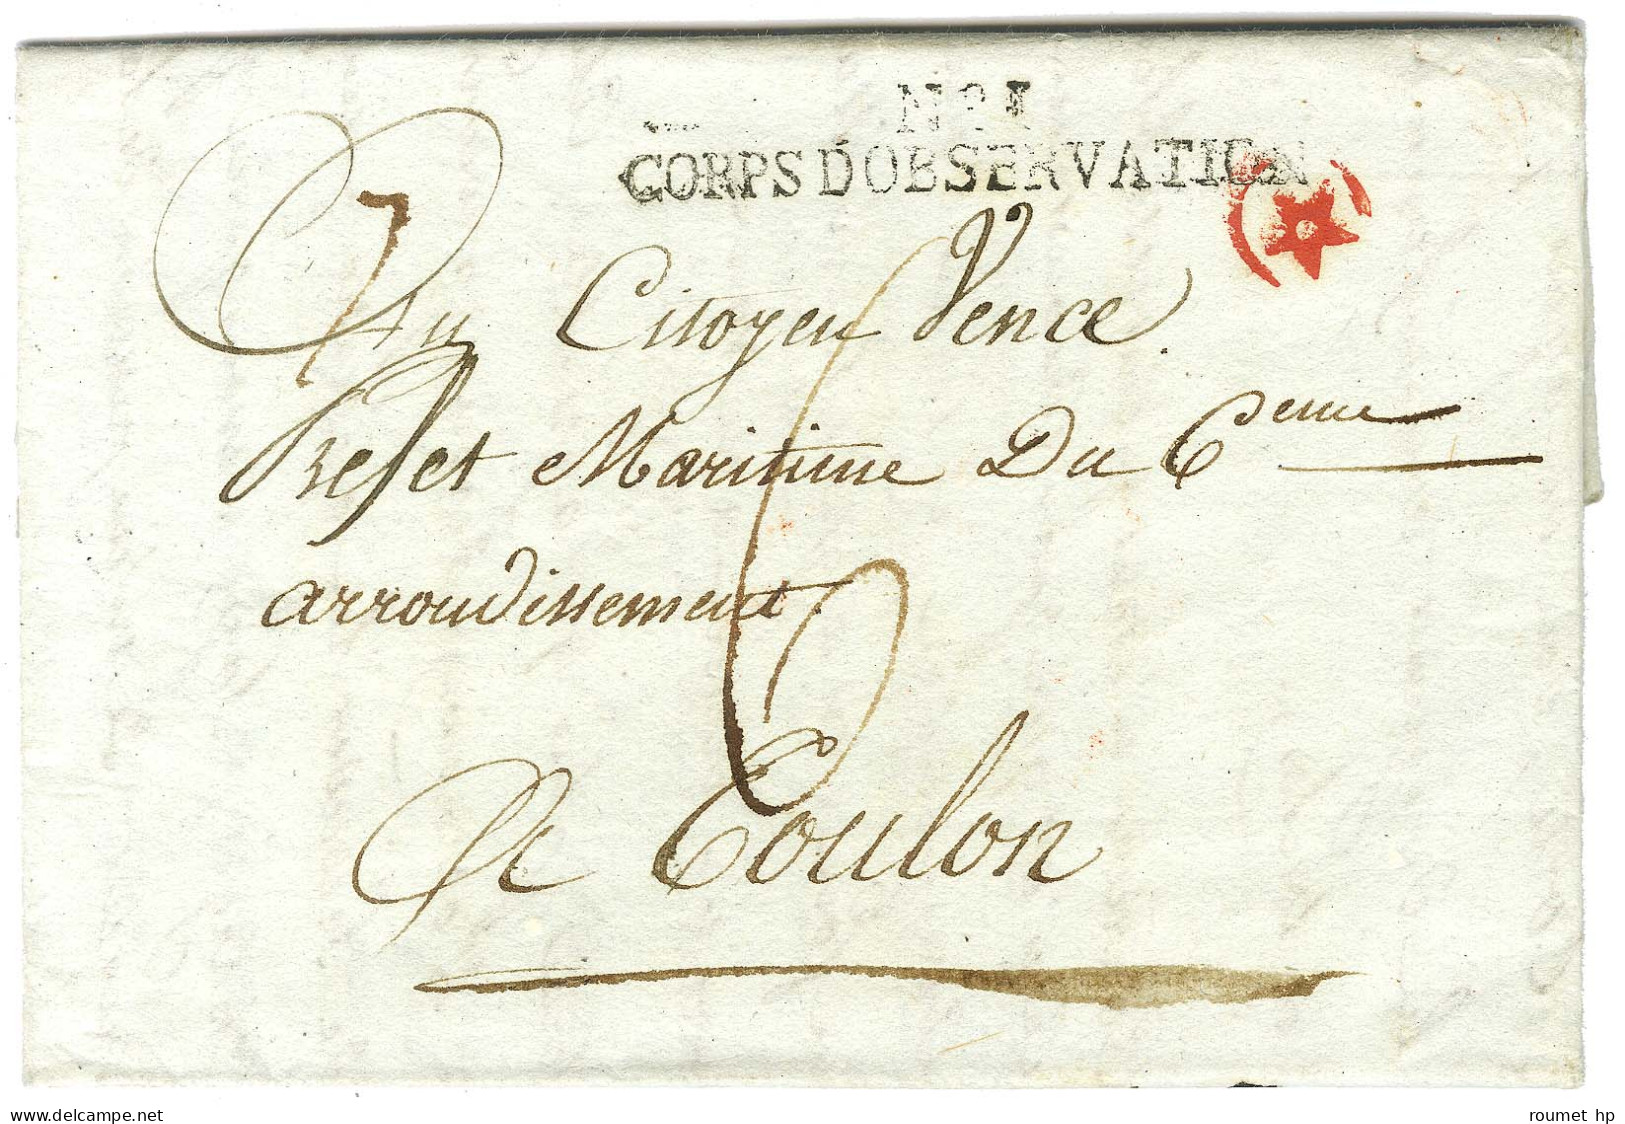 N° 1
CORPS D'OBSERVATION
7
Au Citoyen Vence
Prefet Maritime Du 6eme
arrondissement.
6
A Toulon
www.delcampe.net
roumet hp